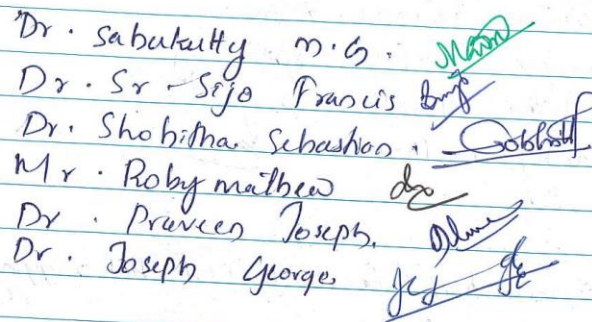 Dr. Sabukutty M.G.
Dr. Sr. Sijo Francis
Dr. Shobitha Sebastian.
Mr. Roby mathew
Dr. Praveen Joseph.
Dr. Joseph George